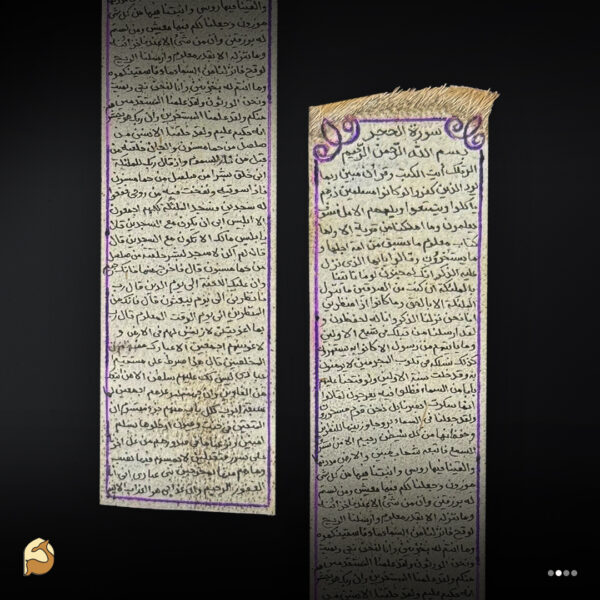 سورة الحجر
بسم الله الرحمن الرحيم
الر تلك ايت الكتب وقرآن مبين ربما
يود الذين كفروا لو كانوا مسلمين ذرهم
ياكلوا ويتمتعوا ويلههم الامل فسوف
يعلمون وما اهلكنا من قرية الا ولها
كتاب معلوم ما تسبق من امة اجلها و
ما يستخرون وقالوا يايها الذي نزل
عليه الذكر انك لمجنون لو ما تاتينا
بالملئكة ان كنت من الصدقين ما ننزل
الملئكة الا بالحق وما كانوا اذا منظرين
انا نحن نزلنا الذكر وانا له لحفظون و
لقد ارسلنا من قبلك في شيع الاولين
وما ياتيهم من رسول الا كانوا به يستهزون
كذلك نسلكه في قلوب المجرمين لا يومنون
به وقد خلت سنة الاولين ولو فتحنا عليهم
بابا من السماء فظلوا فيه يعرجون لقالوا
انما سكرت ابصرنا بل نحن قوم مسحورون
ولقد جعلنا في السماء بروجا وزينها للنظرين
وحفظنها من كل شيطن رجيم الا من استرق
السمع فاتبعه شهاب مبين والارض مددنها
والقينا فيها روسي وانبتنا فيها من كل شي
موزون وجعلنا لكم فيها معيش ومن لستم
له برزقين وان من شيء الا عندنا خزائنه
وما ننزله الا بقدر معلوم وارسلنا الريح
لوقح فانزلنا من السماء ماء فاسقينكموه
وما انتم له بخزنين وانا لنحن نحي ونميت
ونحن الورثون ولقد علمنا المستقدمين
منكم ولقد علمنا المستخرين وان ربك هو يحشرهم
انه حكيم عليم ولقد خلقنا الانسن من
والقينا فيها روسي وانبتنا فيها من كل شي
موزون وجعلنا لكم فيها معيش ومن لستم
له برزقين وان من شيء الا عندنا خزائنه
وما ننزله الا بقدر معلوم وارسلنا الريح
لوقح فانزلنا من السماء ماء فاسقينكموه
وما انتم له بخزنين وانا لنحن نحي ونميت
ونحن الورثون ولقد علمنا المستقدمين
منكم ولقد علمنا المستخرين وان ربك هو يحشرهم
انه حكيم عليم ولقد خلقنا الانسن من
صلصل من حما مسنون والجان خلقنه من
قبل من نار السموم واذ قال ربك للملئكة
اني خلق بشرا من صلصل من حما مسنون
فاذا سويته ونفخت فيه من روحي فقعوا
له سجدين فسجد الملئكة كلهم اجمعون
الا ابليس ابى ان يكون مع السجدين قال
يا بليس ما لك الا تكون مع السجدين قال
لم اكن لاسجد لبشر خلقته من صلصل
من حما مسنون قال فاخرج منها فانك رجيم
وان عليك اللعنة الى يوم الدين قال رب
فانظرني الى يوم يبعثون قال فانك من
المنظرين الى يوم الوقت المعلوم قال رب
بما اغويتني لازينن لهم في الارض و
لاغوينهم اجمعين الا عبادك منهم
المخلصين قال هذا صرط علي مستقيم
عبادي ليس لك عليهم سلطن الا من اتبعك
من الغاوين وان جهنم لموعدهم اجمعين لها
سبعة ابوب لكل باب منهم جزء مقسوم ان
المتقين في جنت وعيون ادخلوها بسلم
امنين ونزعنا ما في صدورهم من غل اخونا
على سرر متقبلين لا يمسهم فيها نصب
وما هم منها بمخرجين نبئ عبادي اني انا
الغفور الرحيم وان عذابي هو العذاب الاليم